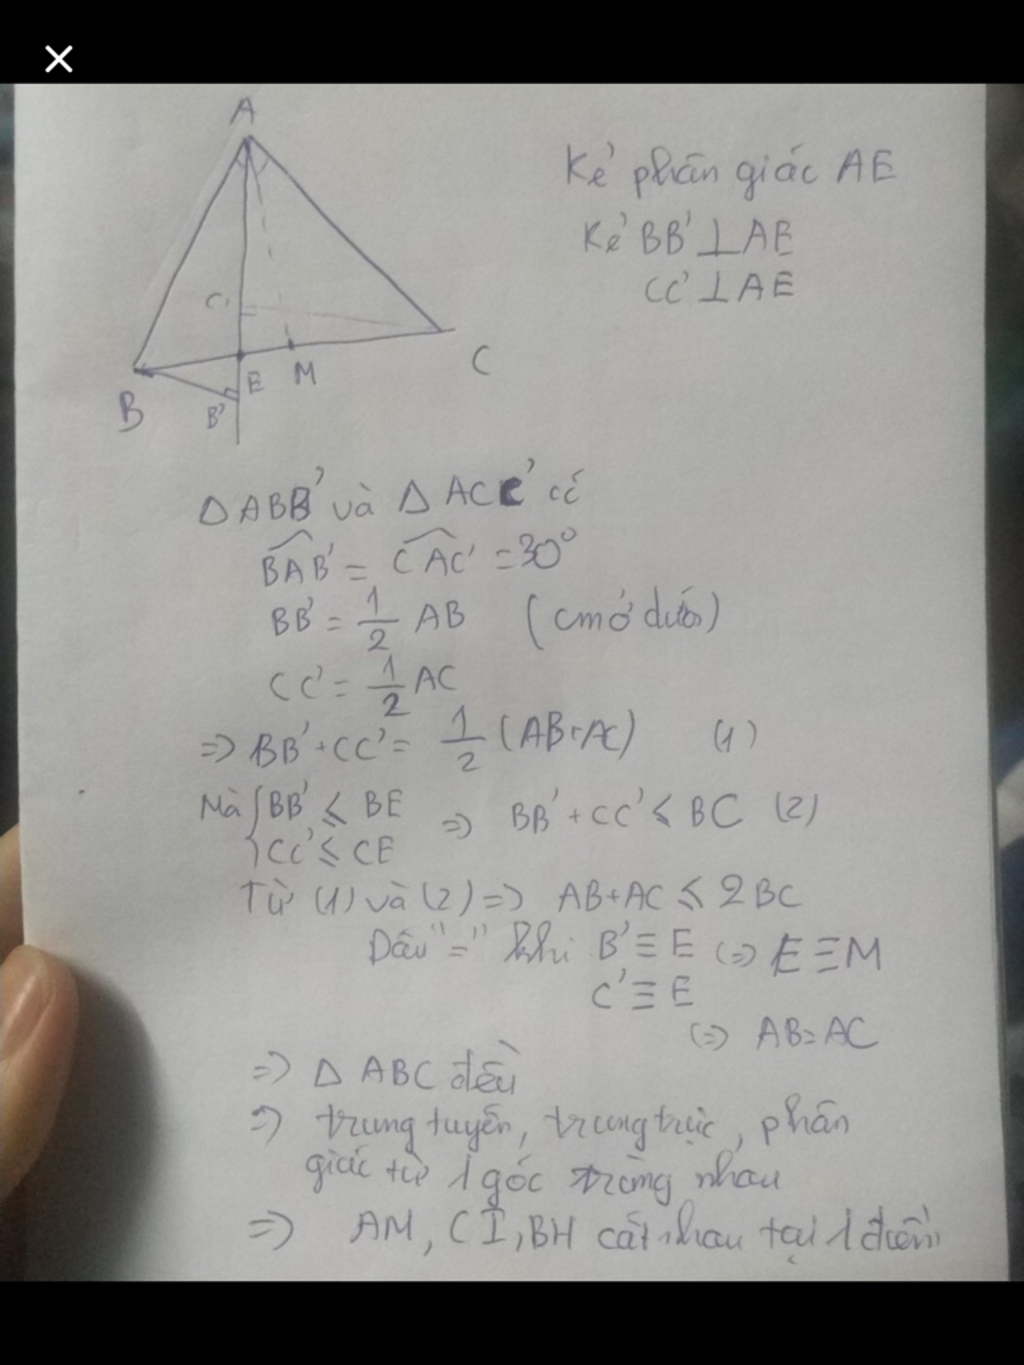 A
Kẻ phân giác AE
Kẻ BB' ⊥ AE
CC' ⊥ AE
C'
E
M
C
B
B'
Δ ABB' và Δ ACC' có
BAB' = CAC' = 30°
BB' = 1/2 AB (cm ở dưới)
CC' = 1/2 AC
=> BB' + CC' = 1/2 (AB+AC) (1)
Mà { BB' ≤ BE => BB' + CC' ≤ BC (2)
CC' ≤ CE
Từ (1) và (2) => AB+AC ≤ 2BC
Dấu "=" khi B' ≡ E (=> E ≡ M
C' ≡ E
(=> AB = AC
=> Δ ABC đều
=> trung tuyến, trung trực, phân
giác từ 1 góc trùng nhau
=> AM, CI, BH cắt nhau tại 1 điểm